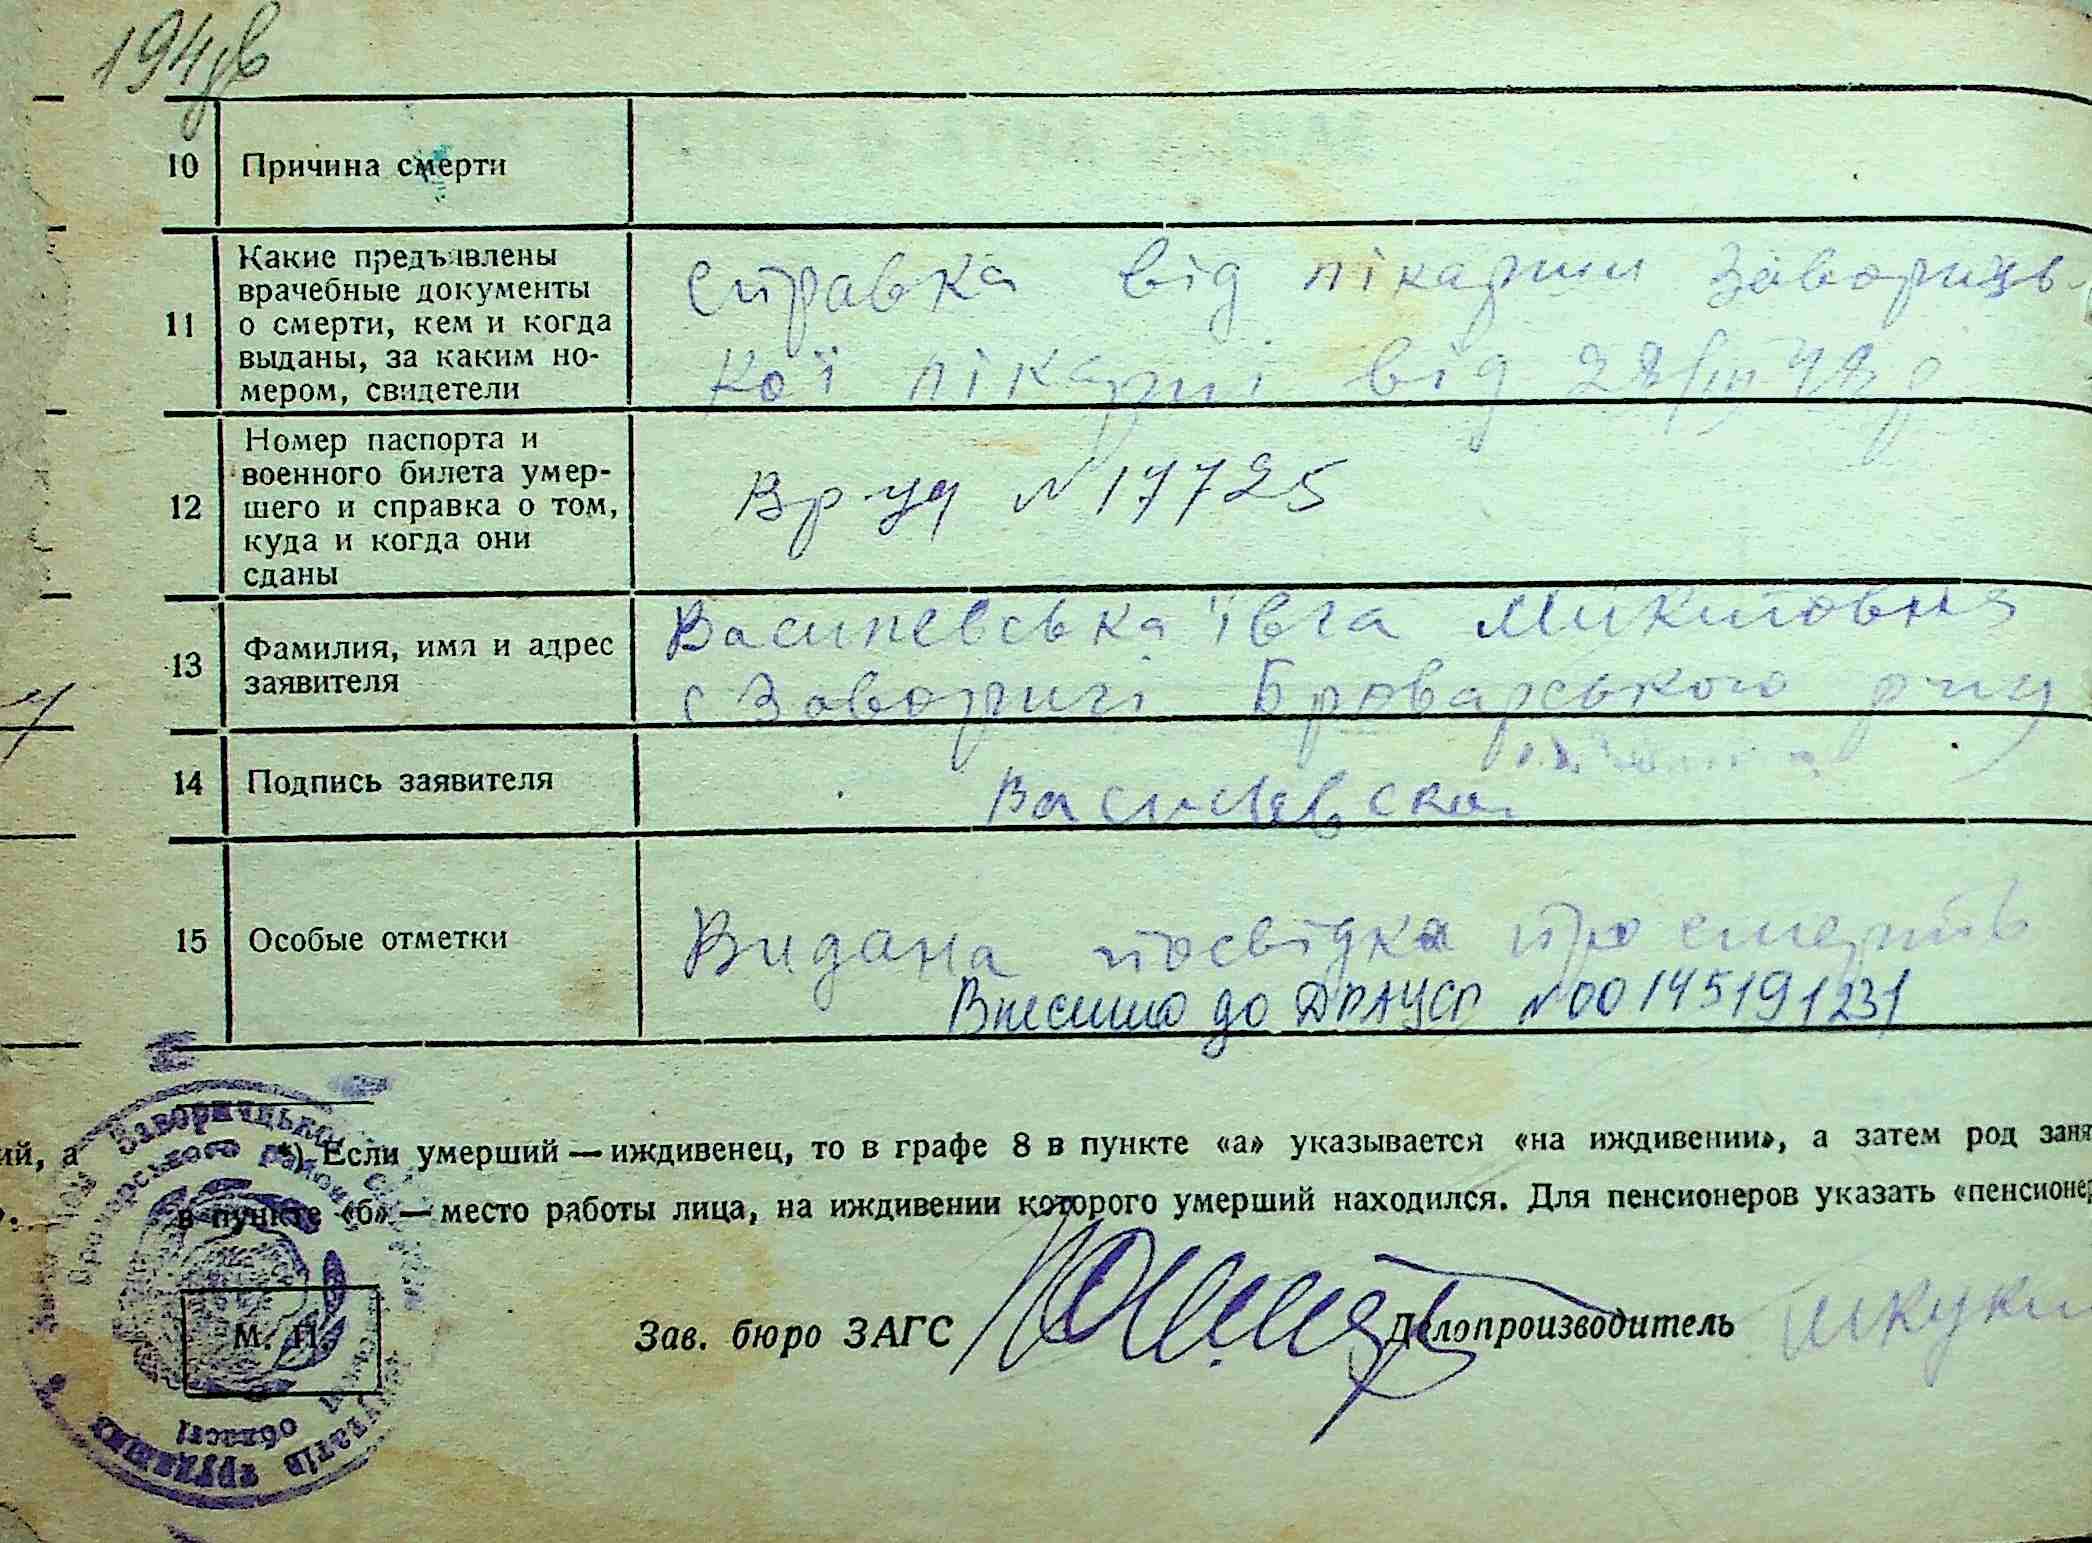 10 Причина смерти
11 Какие предъявлены
врачебные документы
о смерти, кем и когда
выданы, за каким но-
мером, свидетели
справка від лікарки Завориць-
кої лікарні від 28/III 48 р
12 Номер паспорта и
военного билета умер-
шего и справка о том,
куда и когда они
сданы
№ 17725
13 Фамилия, имя и адрес
заявителя
Василевська Ївга Микитовна
с Заворичі Броварського р-ну
14 Подпись заявителя
Василевска
15 Особые отметки
Видана посвідка про смерть
Внесено до ДРАЦСГ №00145191231
ий, а
*) Если умерший — иждивенец, то в графе 8 в пункте «а» указывается «на иждивении», а затем род заня
в пункте «б» — место работы лица, на иждивении которого умерший находился. Для пенсионеров указать «пенсионер
Заворицької
Броварського району
області
депутатів трудящих
М. П.
Зав. бюро ЗАГС
Делопроизводитель